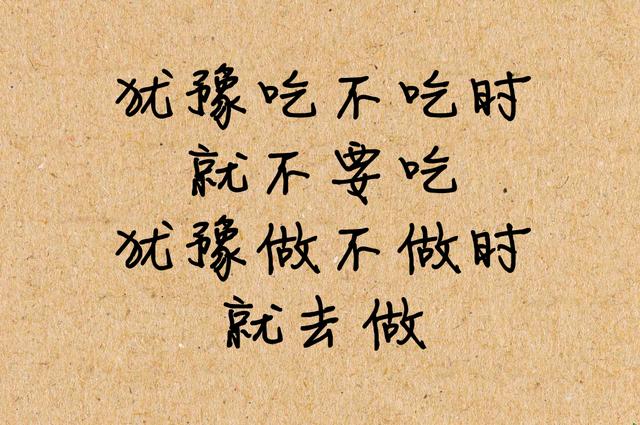 犹豫吃不吃时
就不要吃
犹豫做不做时
就去做